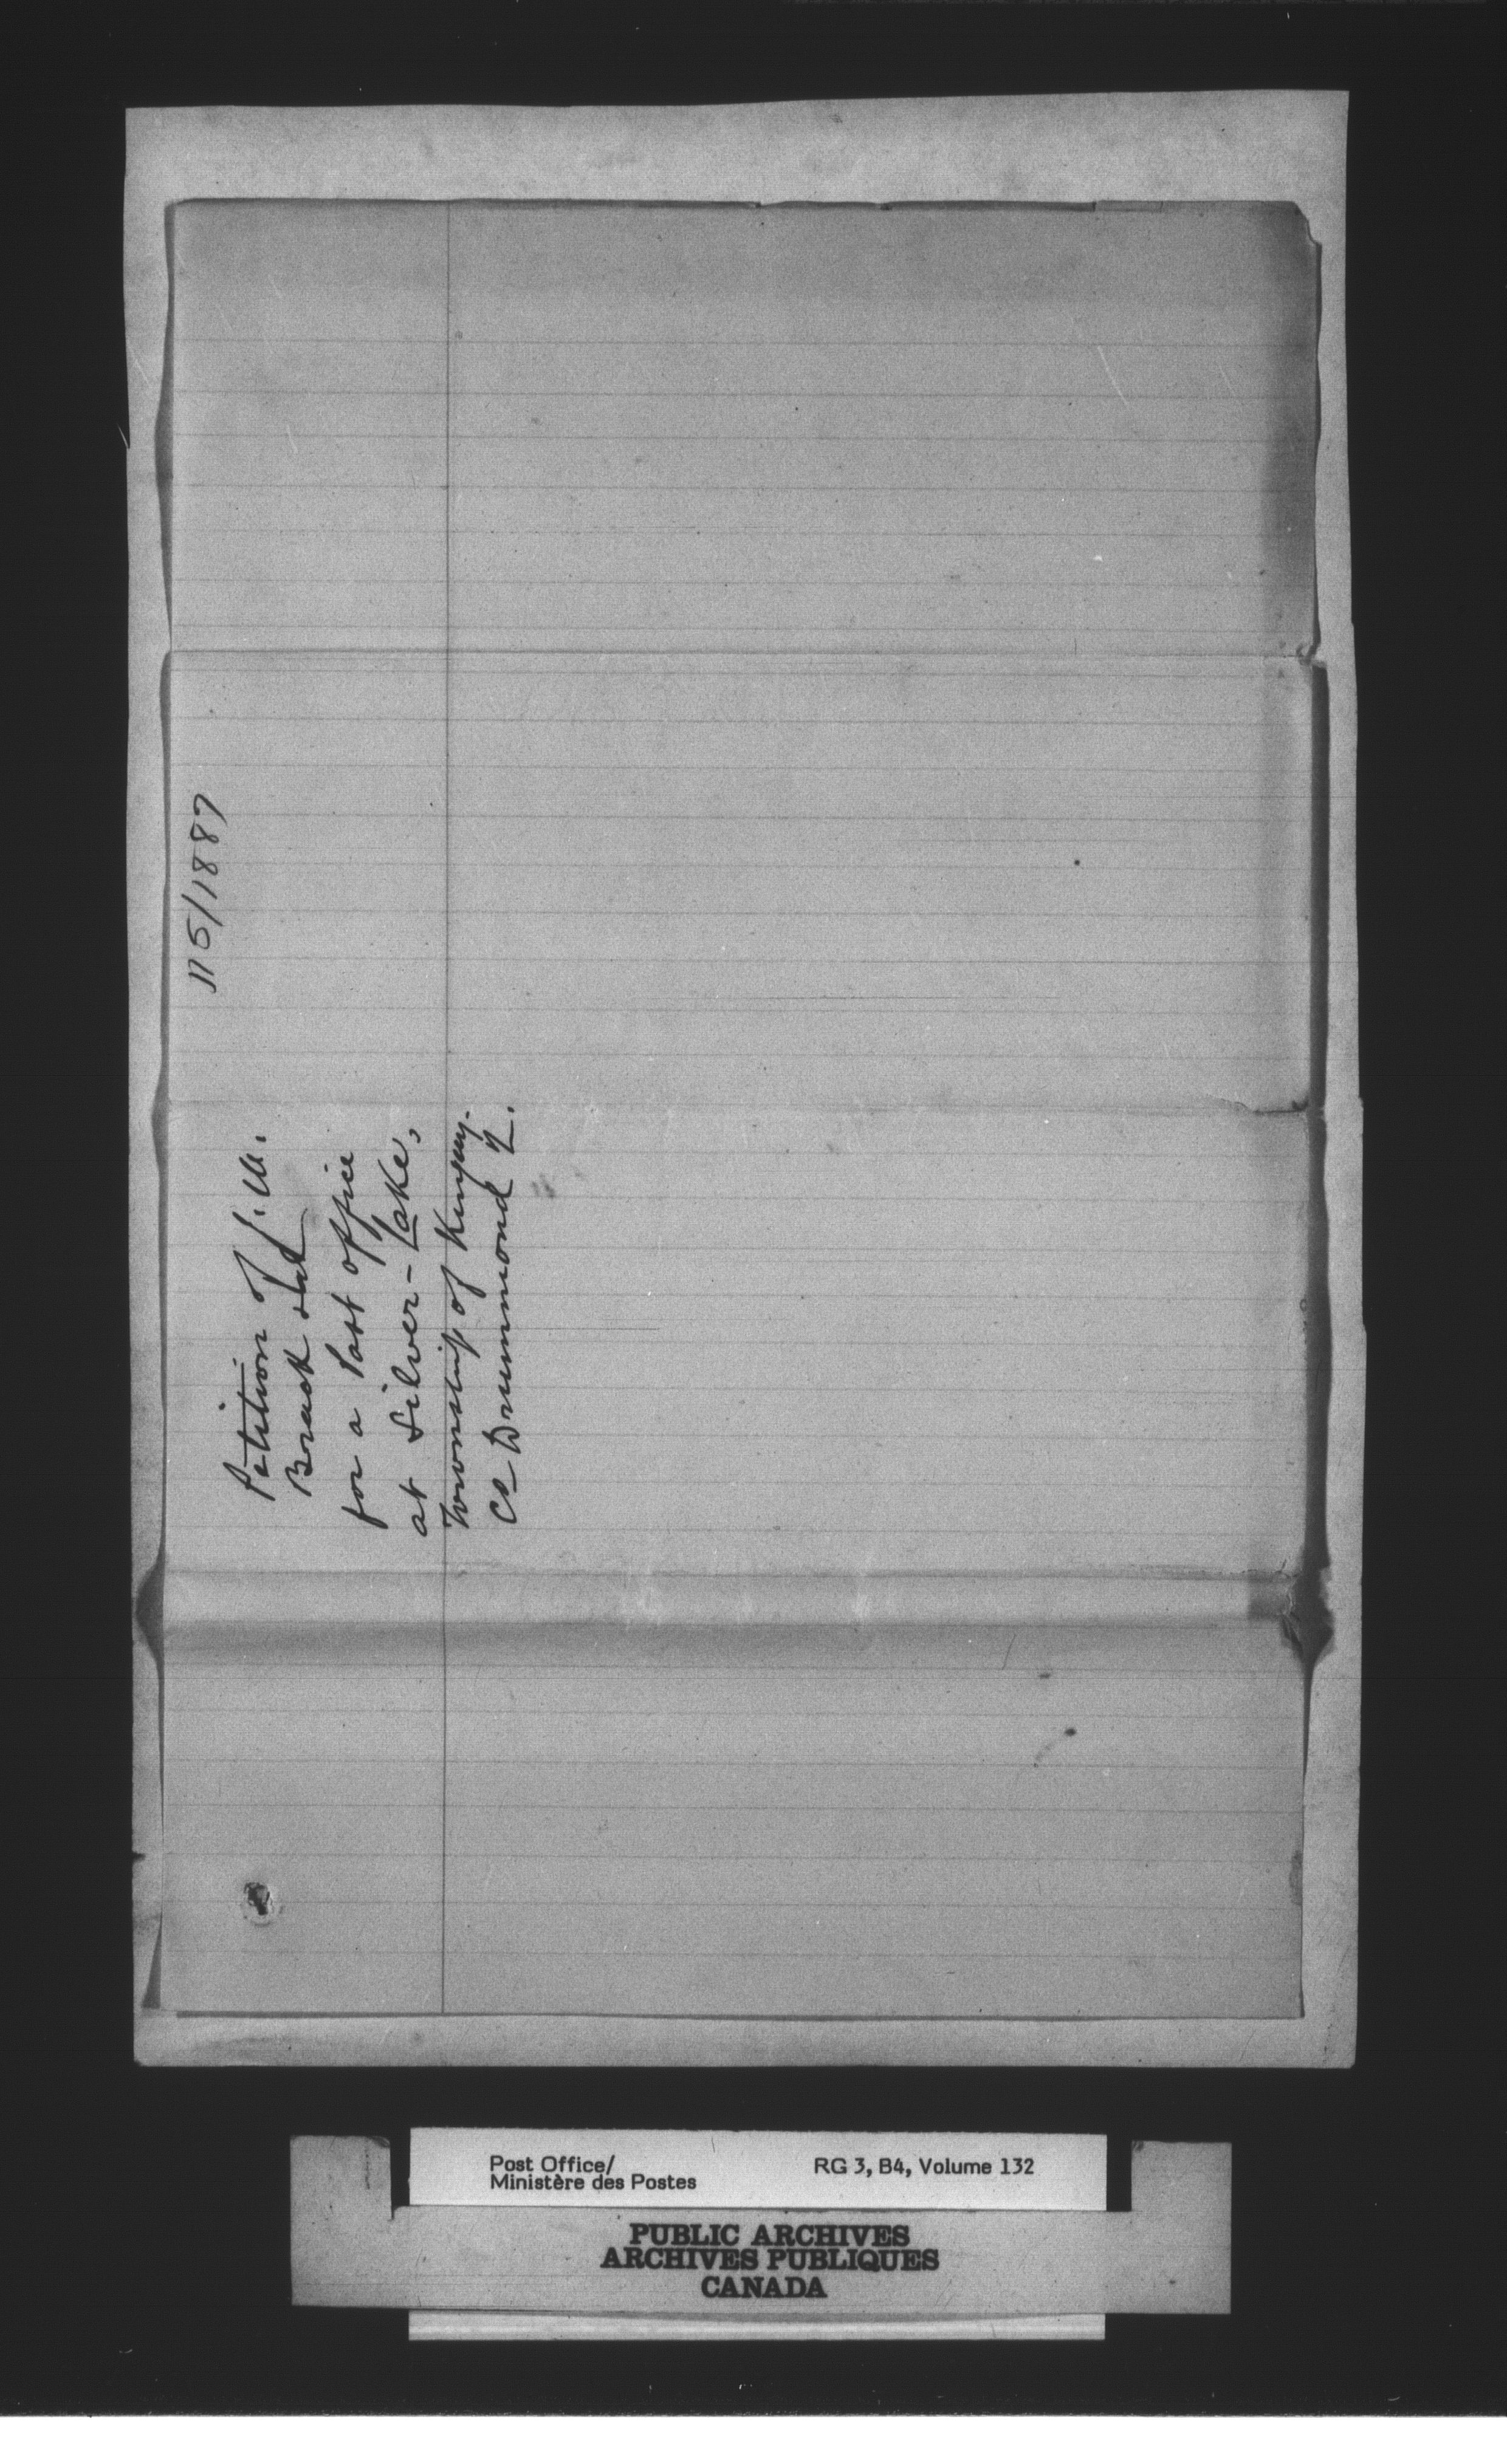 115/1887
Petition of J. W.
Brack &al
for a Post office
at Silver-Lake,
Township of Kingsey.
Co Drummond Q.
Post Office/
Ministère des Postes
RG 3, B4, Volume 132
PUBLIC ARCHIVES
ARCHIVES PUBLIQUES
CANADA